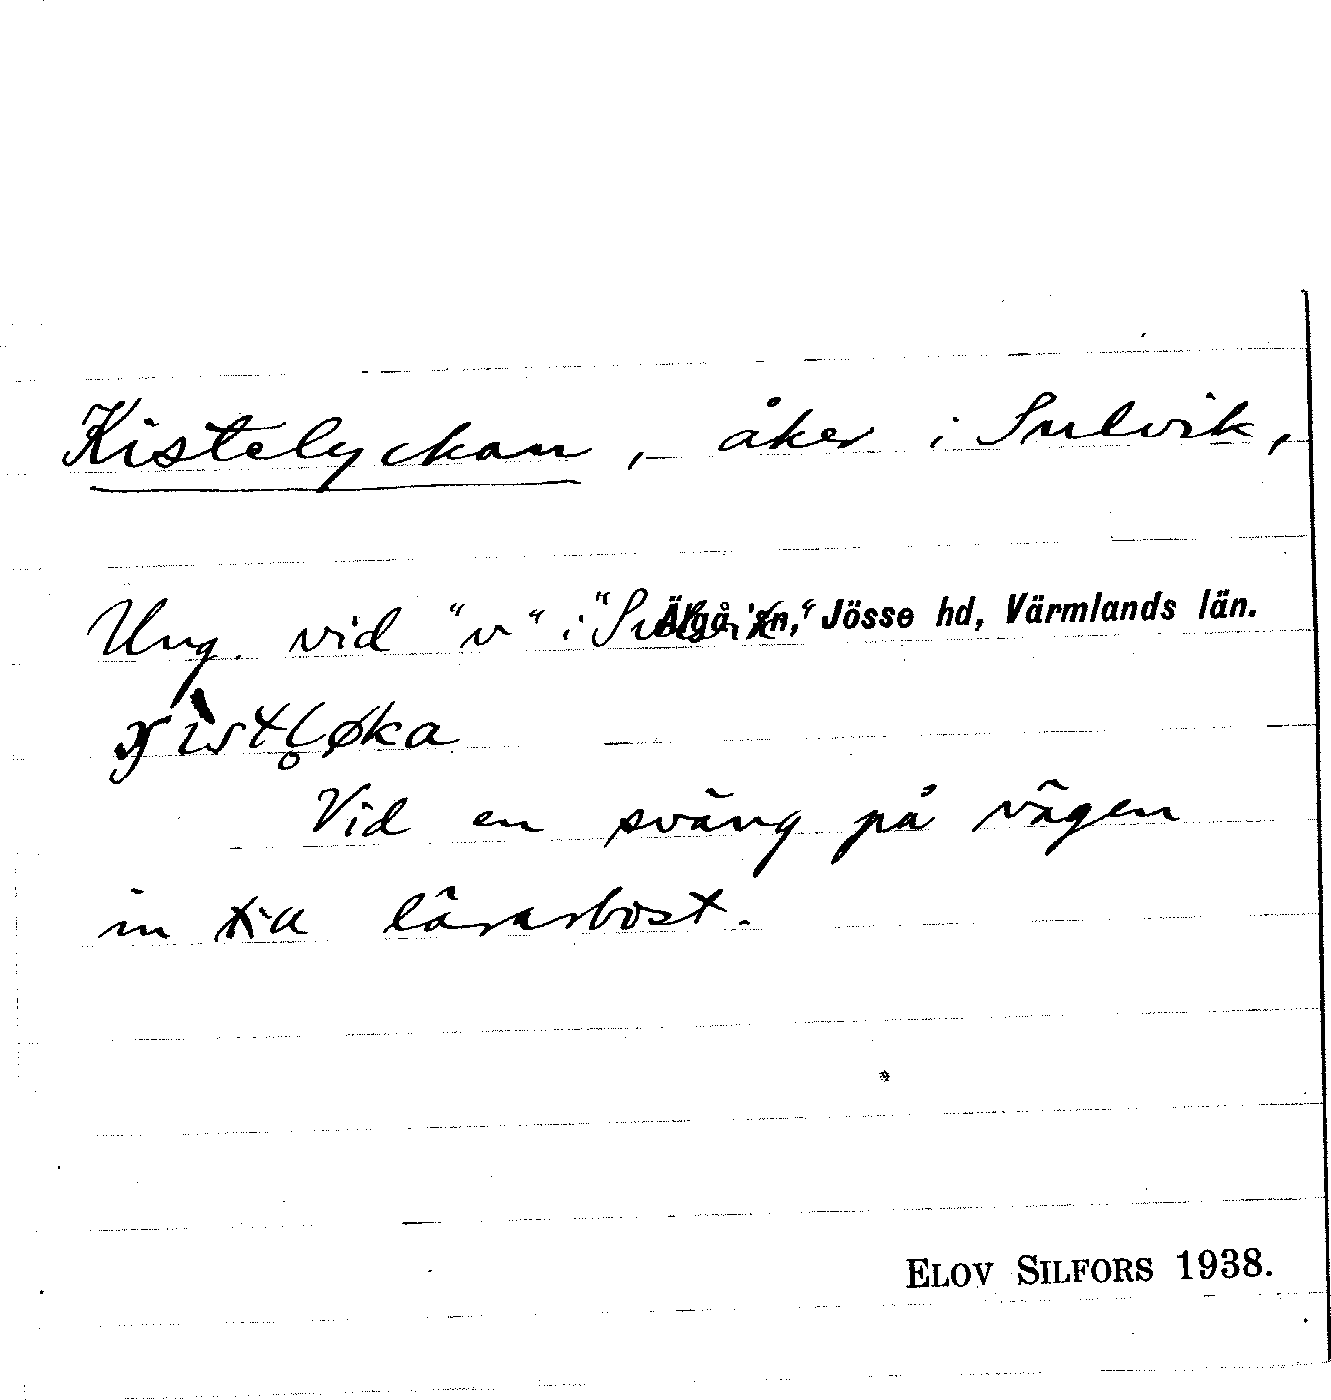 Kistelyckan, åker i Sulvik,
Ung. vid "v" i "Sulvik" Älgå sn, Jösse hd, Värmlands län.
Vid en sväng på vägen
in till lärarbost.
ELOV SILFORS 1938.